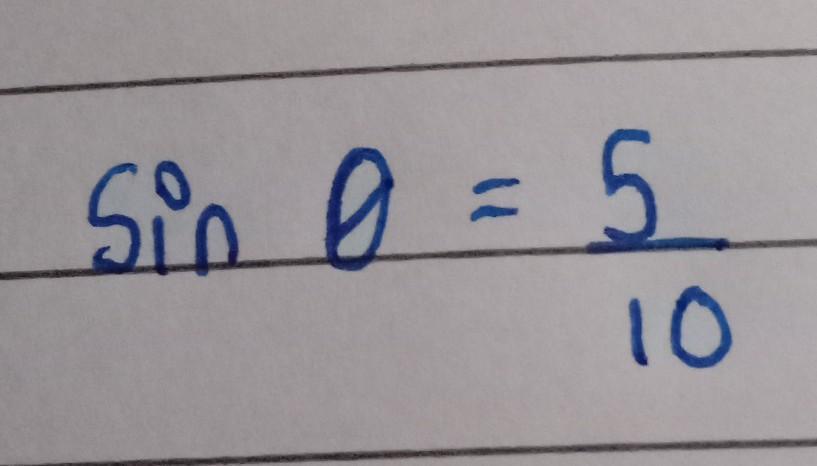 sin θ = 5/10